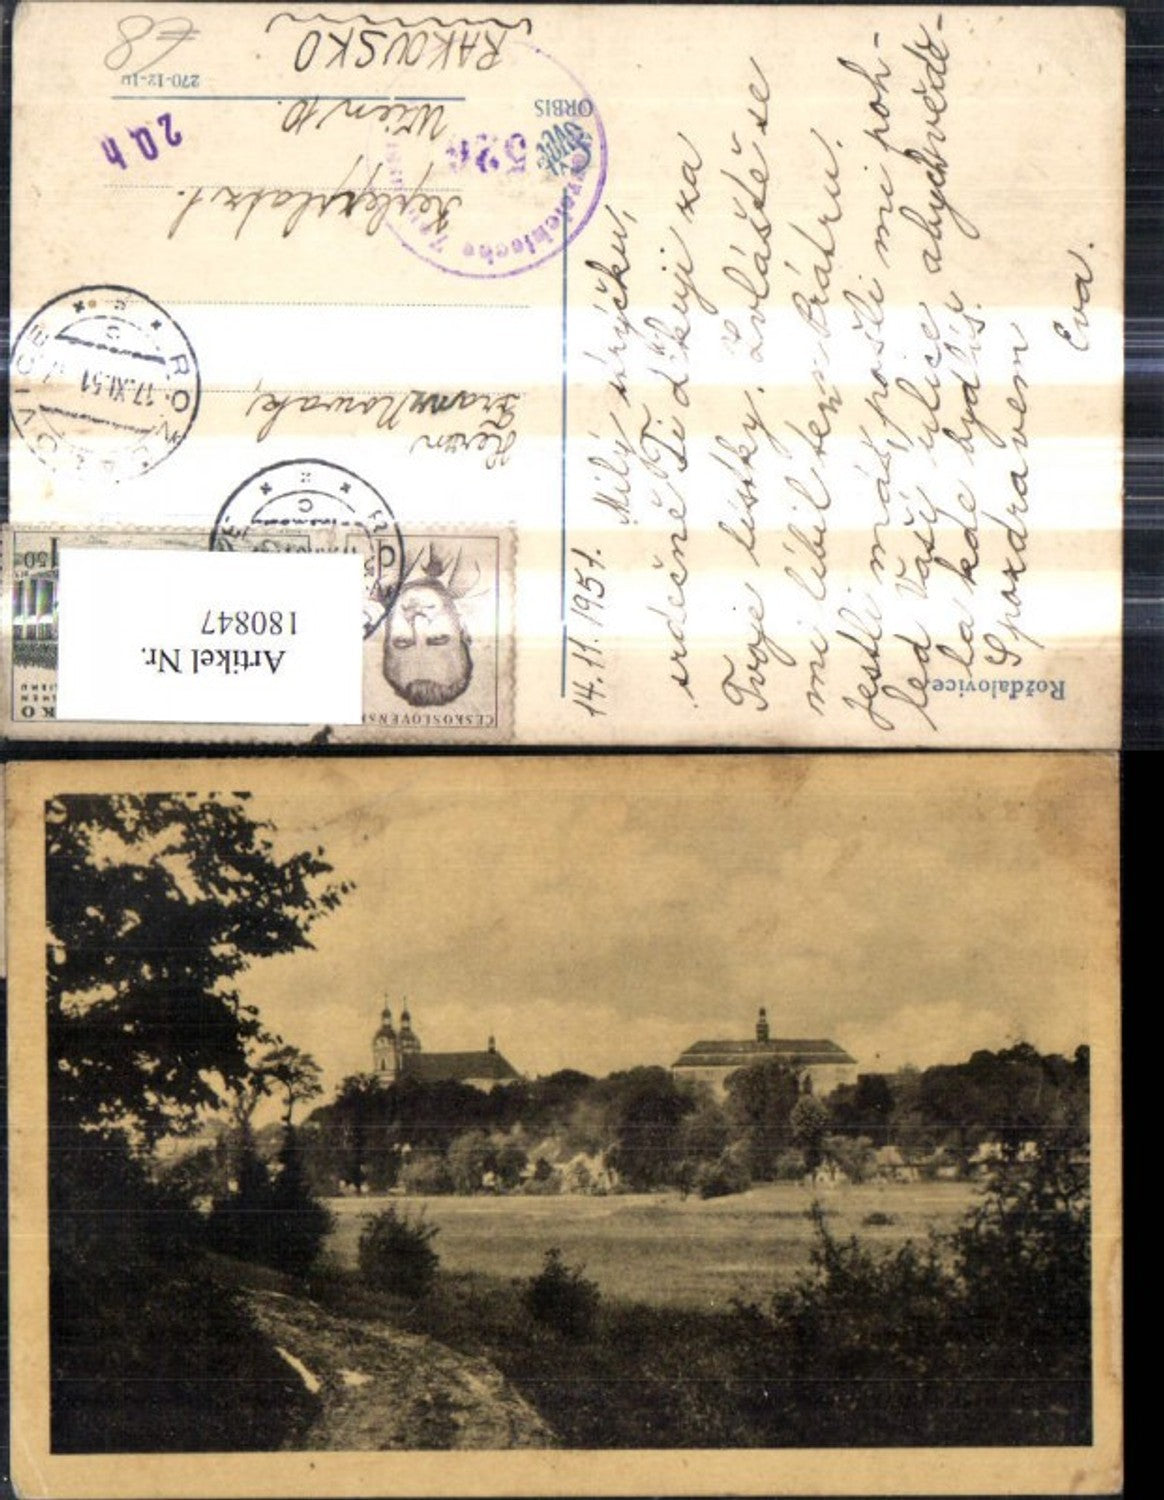 Rožďalovice.
14.11.1951.
Milý strýčku,
srdečně Ti děkuji za
Tvoje lístky. Zvláště se
mi líbil ten z Prátru.
Jestli máš, pošli mi poh-
led Vaší ulice abych vědě-
la kde bydlíš.
S pozdravem
Eva.
ORBIS
270-12-10
Herrn
Franz Nowak,
Keplerplatz 1.
Wien 10.
RAKOUSKO
€8
20 h
ROŽĎALOVICE
17.XI.51
C
ČESKOSLOVENS
1 50
Artikel Nr.
180847